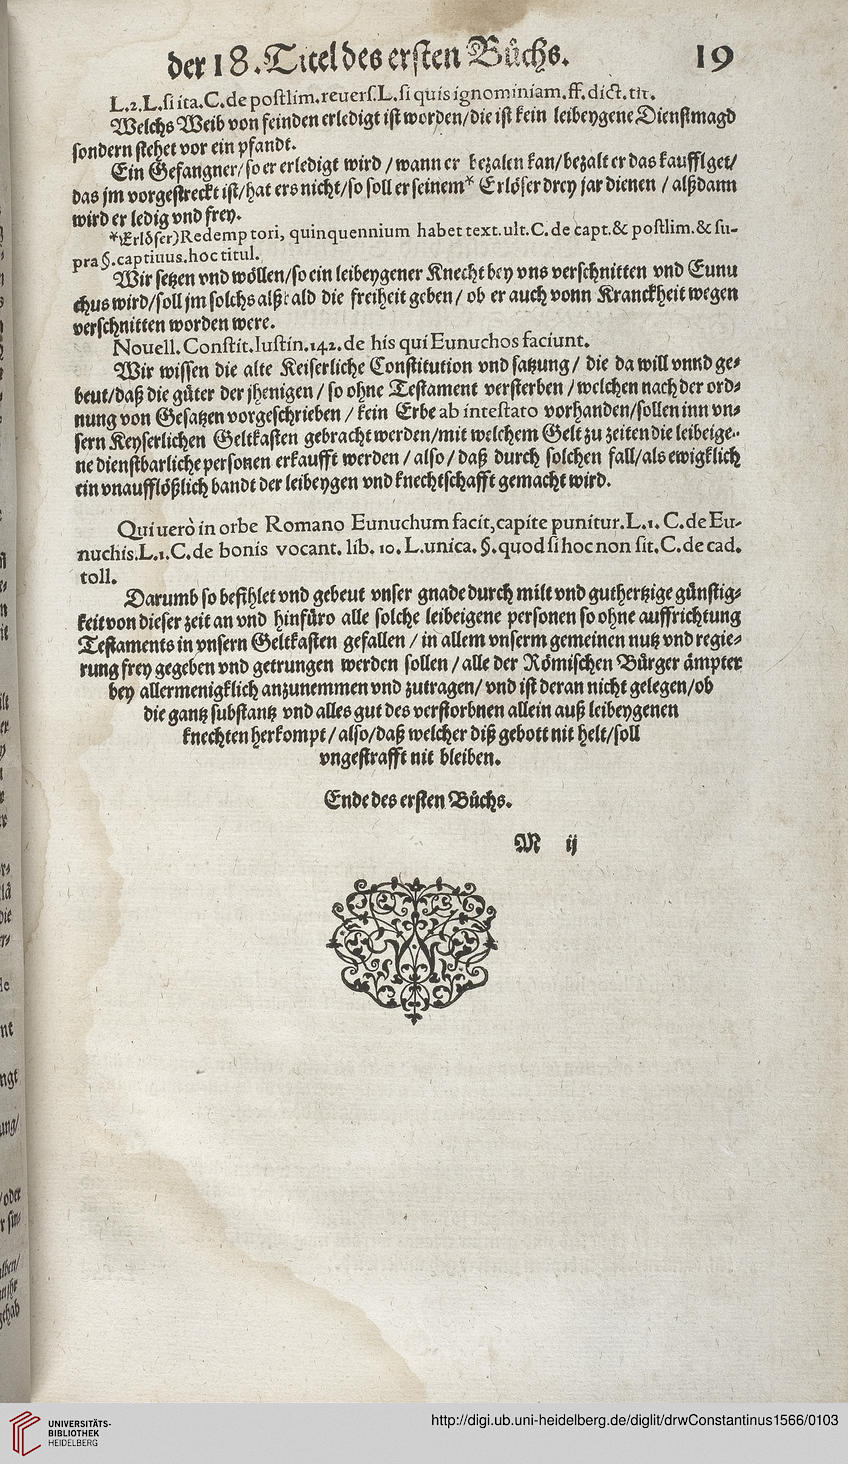 der 18. Titel des ersten Bůchs. 19
L.2.L.si ita.C.de postlim.reuers.L.si quis ignominiam.ff.dict.tit.
Welchs Weib von feinden erledigt ist worden/die ist kein leibeygene Dienstmagd
sondern stehet vor ein pfandt.
Ein Gefangner/so er erledigt wird / wann er bezalen kan/bezalt er das kauffgelt/
das jm vorgestreckt ist/hat ers nicht/so soll er seinem* Erlöser drey jar dienen / alßdann
wird er ledig vnd frey.
*(Erlöser)Redemptori, quinquennium habet text.ult.C.de capt.& postlim.& su-
pra §.captiuus.hoc titul.
Wir setzen vnd wöllen/so ein leibeygener Knecht bey vns verschnitten vnd Eunu
chus wird/soll jm solchs alßbald die freiheit geben / ob er auch vonn Kranckheit wegen
verschnitten worden were.
Nouell. Constit.Iustin.142.de his qui Eunuchos faciunt.
Wir wissen die alte Keiserliche Constitution vnd satzung / die da will vnnd ge-
beut/daß die güter der jhenigen / so ohne Testament versterben / welchen nach der ord-
nung von Gesatzen vorgeschrieben / kein Erbe ab intestato vorhanden/sollen inn vn-
sern Keyserlichen Geltkasten gebracht werden/mit welchem Gelt zu zeiten die leibeige-
ne dienstbarliche personen erkaufft werden / also / daß durch solchen fall/als ewigklich
ein vnaufflößlich bandt der leibeygen vnd knechtschafft gemacht wird.
Qui uerò in orbe Romano Eunuchum facit, capite punitur.L.1. C.de Eu-
nuchis.L.1.C.de bonis vocant. lib. 10. L.unica. §.quod si hoc non sit.C.de cad.
toll.
Darumb so befihlet vnd gebeut vnser gnade durch milt vnd guthertzige günstig-
keit von dieser zeit an vnd hinfüro alle solche leibeigene personen so ohne auffrichtung
Testaments in vnsern Geltkasten gefallen / in allem vnserm gemeinen nutz vnd regie-
rung frey gegeben vnd getrungen werden sollen / alle der Römischen Bürger ämpter
bey allermenigklich anzunemmen vnd zutragen / vnd ist deran nicht gelegen/ob
die gantz substantz vnd alles gut des verstorbnen allein auß leibeygenen
knechten herkompt / also/daß welcher diß gebott nit helt/soll
vngestrafft nit bleiben.
Ende des ersten Bůchs.
M ij
UNIVERSITÄTS-
BIBLIOTHEK
HEIDELBERG
http://digi.ub.uni-heidelberg.de/diglit/drwConstantinus1566/0103